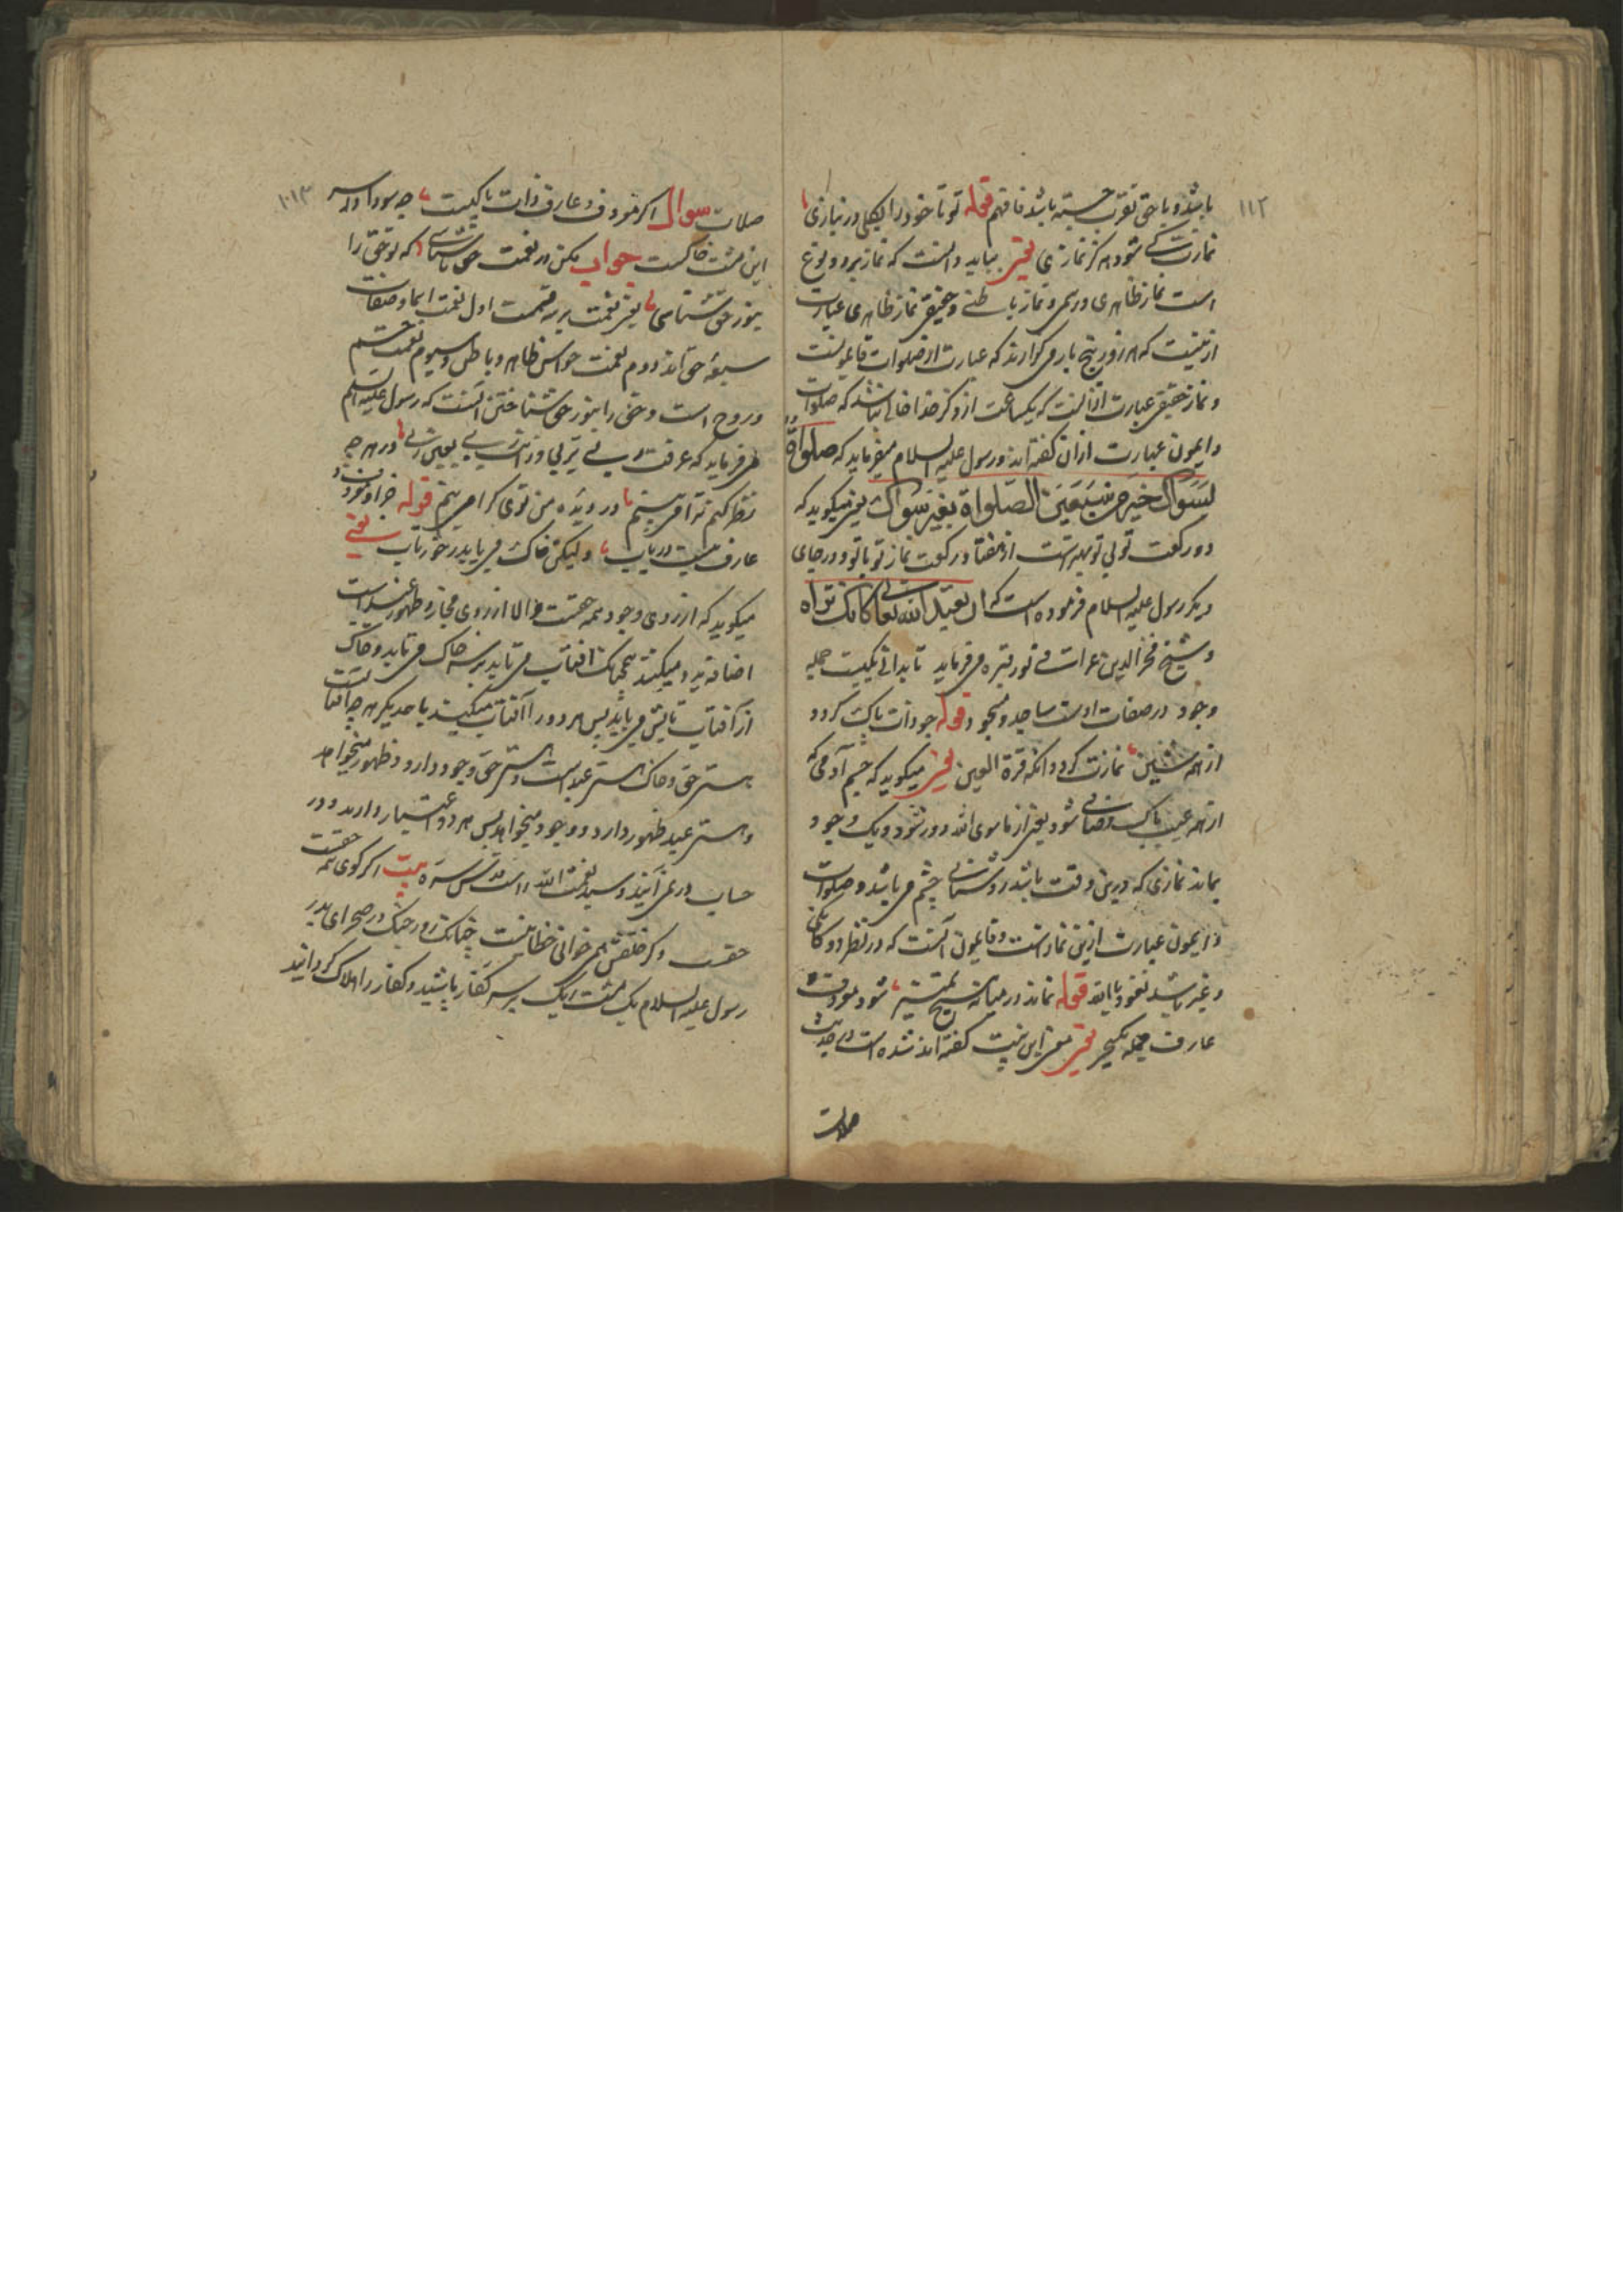 ۱۱۲
باشد و با حق تقرب جسته باشد فافهم قوله تو تا خود را بکلی در نبازی
نمازت کی شود هرگز نمازی یعنی بباید دانست که نماز بر دو نوع
است نماز ظاهری و رسمی و نماز باطنی و حقیقی نماز ظاهری عبارت
ازینست که هر روز پنج بار می گزارند که عبارت از صلوات قایمونست
و نماز حقیقی عبارت از آنست که یکساعت از ذکر خدا خالی نباشد که صلوات
دایمون عبارت از ان گفته اند و رسول علیه السلام میفرماید که صلواة
بسواك خير من سبعين الصلواة بغير سواك یعنی میگوید که
دو رکعت تو بی تو بهتر است از هفتاد رکعت نماز تو با تو و در جای
دیگر رسول علیه السلام فرموده است که ان تعبد الله تعالی کانک تراه
و شیخ فخرالدین عراقی نور قبره می فرماید تا بدانی یکیست جمله
وجود در صفات اوست ساجد و مسجود قوله چو ذاتت پاک گردد
از همه شین نمازت گردد انگه قرة العین یعنی میگوید که چشم آدمی که
از همه عیب پاک و صافی شود یعنی از ماسوی الله دور شود و یک وجود
بماند نمازی که درین وقت باشد روشنائی چشم می باشد و صلوات
دایمون عبارت ازین نماز است و قایمون آنست که در نظر دوگانگی
و غیر باشد نعوذ بالله قوله نماند در میانه هیچ تمییز شود معروف
عارف جمله یک چیز یعنی معنی این بیت گفته اند شده است در حدیث
صلات
۱۰۱۳
صلات سوال اگر معروف و عارف ذات پاکیست چه سودا در سر
این مشت خاکست جواب مکن در نعمت حق ناسپاسی که تو حق را
بنور حق شناسی یعنی نعمت بر سه قسمت اول نعمت اسما و صفات
سبعهٔ حق اند دوم نعمت حواس ظاهر و باطن و سیوم نعمت جسم
و روح است و حق را بنور حق شناختن آنست که رسول علیه السلم
می فرماید که عرفت ربی بربی و رایت ربی بعین ربی در هرچه
نظر کنم ترا می بینم در دیده من توی کرا می بینم قوله جز او معروف و
عارف نیست دریاب ولیکن خاک می یابد ز خور تاب یعنی
میگوید که از روی وجود همه حقست و الا از روی مجاز و ظهور عبد است
اضافه پدید میکند همچنانک افتاب می تابد بر سر خاک می تابد و خاک
از آفتاب تابش می یابد پس هر دو را آفتاب میگیند با همدیگر هرچه آفتابست
هستی حق و خاک هستی عبد است و هستی حق وجود دارد و ظهور میخواهد
و هستی عبد ظهور دارد و وجود میخواهد پس هر دو اعتبار دارند و در
حساب در می آیند و سید نعمت الله راست قدس سره بیت اگر گوی همه حقست
حقست وگر خلقش همی خوانی خطا نیست چنانک روز جنگ در صحرای بدر
رسول علیه السلام یک مشت ریگ بر سر کفار پاشید و کفار را هلاک گردانید